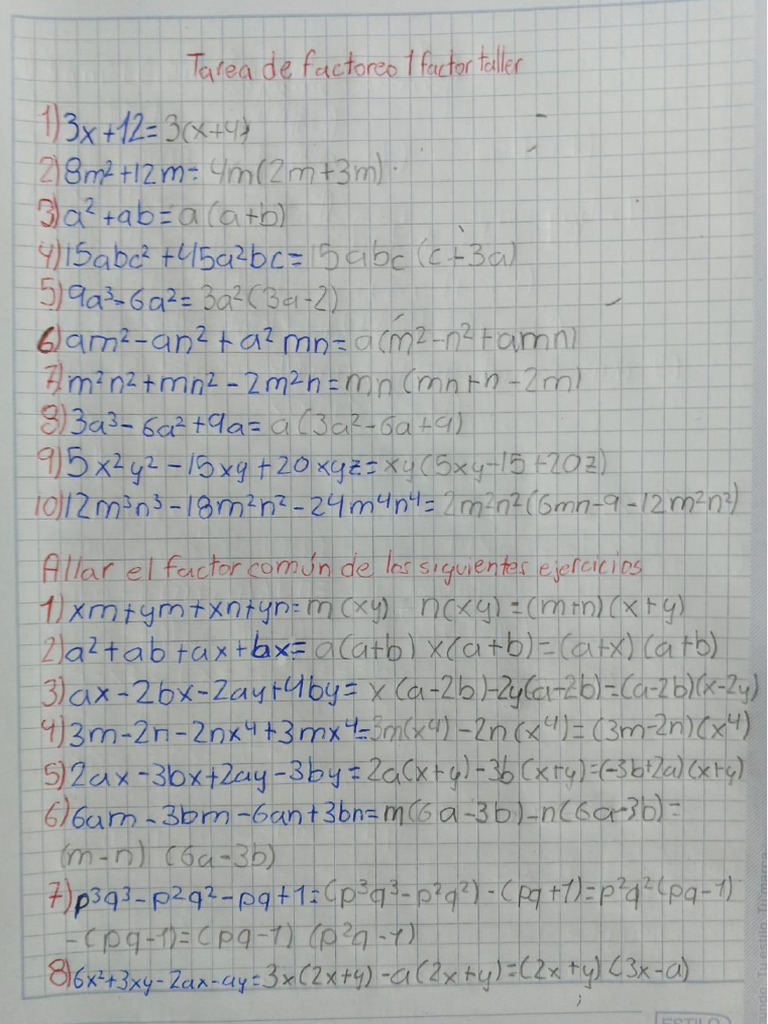 Tarea de factoreo 1 factor taller
1) 3x+12=3(x+4)
2) 8m²+12m= 4m(2m+3m)
3) a²+ab=a(a+b)
4) 15abc²+45a²bc=15abc(c+3a)
5) 9a³-6a²=3a²(3a-2)
6) am²-an²+a²mn=a(m²-n²+amn)
7) m²n²+mn²-2m²n=mn(mn+n-2m)
8) 3a³-6a²+9a=a(3a²-6a+9)
9) 5x²y²-15xy+20xyz=xy(5xy-15+20z)
10) 12m³n³-18m²n²-24m⁴n⁴=2m²n²(6mn-9-12m²n²)
Allar el factor común de los siguientes ejercicios
1) xm+ym+xn+yn=m(xy) n(xy)=(m+n)(x+y)
2) a²+ab+ax+bx=a(a+b) x(a+b)=(a+x)(a+b)
3) ax-2bx-2ay+4by=x(a-2b)-2y(a-2b)=(a-2b)(x-2y)
4) 3m-2n-2nx⁴+3mx⁴=3m(x⁴)-2n(x⁴)=(3m-2n)(x⁴)
5) 2ax-3bx+2ay-3by=2a(x+y)-3b(x+y)=(-3b+2a)(x+y)
6) 6am-3bm-6an+3bn=m(6a-3b)-n(6a-3b)=
(m-n) (6a-3b)
7) p³q³-p²q²-pq+1=(p³q³-p²q²)-(pq+1)=p²q²(pq-1)
-(pq-1)=(pq-1) (p²q-1)
8) 6x²+3xy-2ax-ay=3x(2x+y)-a(2x+y)=(2x+y)(3x-a)